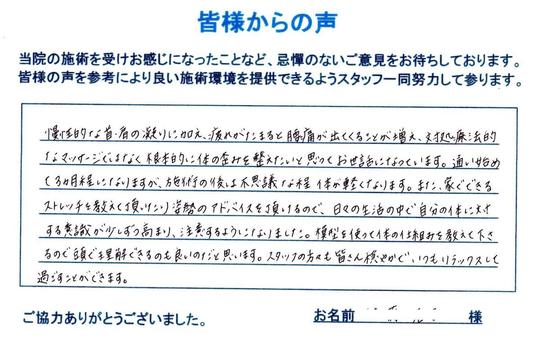 皆様からの声
当院の施術を受けお感じになったことなど、忌憚のないご意見をお待ちしております。
皆様の声を参考により良い施術環境を提供できるようスタッフ一同努力して参ります。
慢性的な首・肩の凝りに加え、疲れがたまると腰痛が出てくることが増え、対処療法的
なマッサージではなく根本的に体の歪みを整えたいと思ってお世話になっています。通い始め
て3ヵ月程になりますが、施術の後は不思議な程体が軽くなります。また、家でできる
ストレッチを教えて頂いたり姿勢のアドバイスを頂けるので、日々の生活の中で自分の体に対
する意識が少しずつ高まり、注意するようになりました。模型を使って体の仕組みを教えて下さ
るので頭で理解できるのも良いのだと思います。スタッフの方々も皆さん穏やかで、いつもリラックスして
過ごすことができます。
ご協力ありがとうございました。
お名前 様